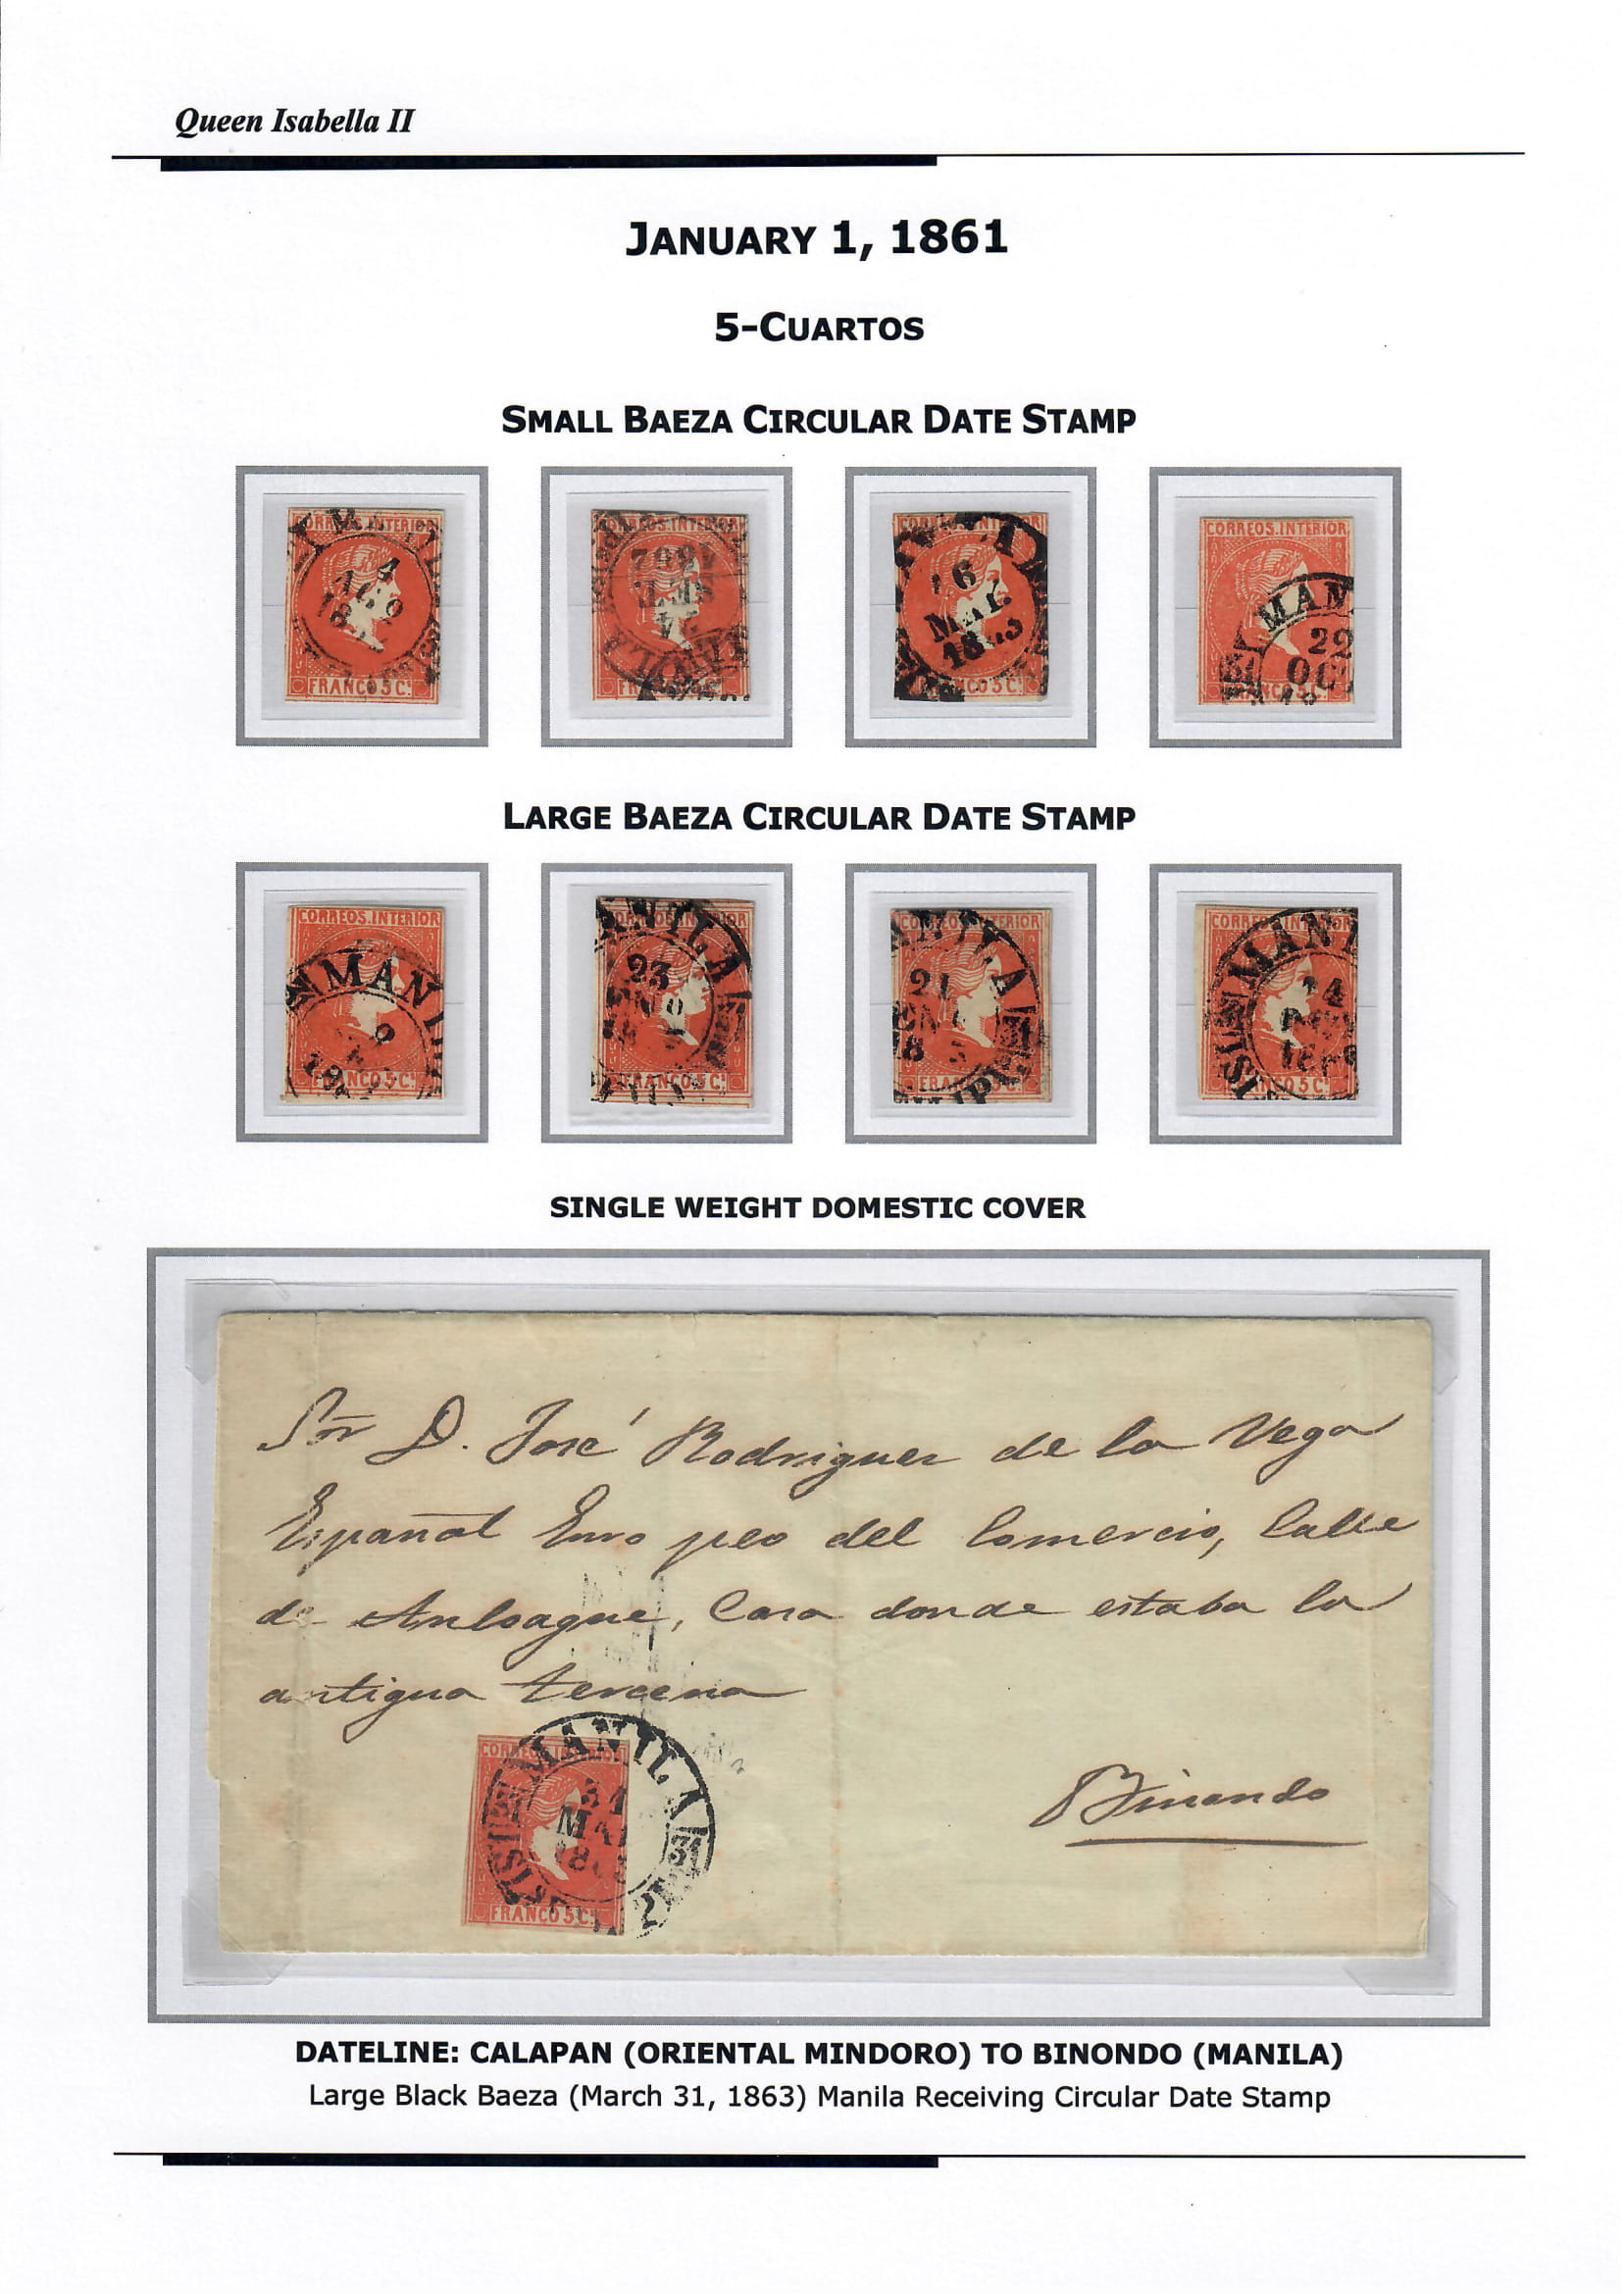 Queen Isabella II
JANUARY 1, 1861
5-CUARTOS
SMALL BAEZA CIRCULAR DATE STAMP
CORREOS.INTERIOR
4
AGO
FRANCO 5 Cs
CORREOS.INTERIOR
1862
CORREOS.INTERIOR
16
MAR.
1863
FRANCO 5 Cs
CORREOS.INTERIOR
MAN
22
OCT
FRANCO 5 Cs
LARGE BAEZA CIRCULAR DATE STAMP
CORREOS.INTERIOR
MANI
FRANCO 5 Cs
CORREOS.INTERIOR
MANILA
23
FRANCO 5 Cs
CORREOS.INTERIOR
ANILA
21
FRANCO 5 Cs
CORREOS.INTERIOR
MANI
24
FRANCO 5 Cs
SINGLE WEIGHT DOMESTIC COVER
Sor D. José Rodriguez de la Vega
Español Euro peo del Comercio, Calle
de Anloague, Casa donde estaba la
antigua tercena
Binondo
CORREOS.INTERIOR
MANILA
31
MAR
FRANCO 5 Cs
DATELINE: CALAPAN (ORIENTAL MINDORO) TO BINONDO (MANILA)
Large Black Baeza (March 31, 1863) Manila Receiving Circular Date Stamp